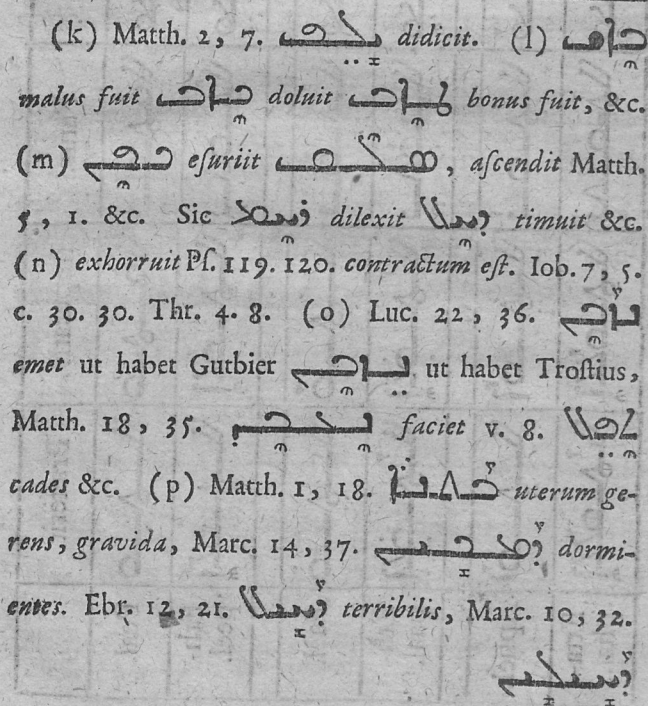 (k) Matth. 2, 7. ܝܠܦ didicit. (l) ܒܐܫ
malus fuit ܟܐܒ doluit ܛܐܒ bonus fuit, &c.
(m) ܟܦܢ eſuriit ܣܠܩ, aſcendit Matth.
5, 1. &c. Sic ܪܚܡ dilexit ܕܚܠ timuit &c.
(n) exhorruit Pſ. 119. 120. contractum eſt. Iob. 7, 5.
c. 30. 30. Thr. 4. 8. (o) Luc. 22, 36. ܢܙܒܢ
emet ut habet Gutbier ܢܙܒܢ ut habet Troſtius,
Matth. 18, 35. ܢܥܒܕ faciet v. 8. ܬܦܠ
cades &c. (p) Matth. 1, 18. ܒܛܢܐ uterum ge-
rens, gravida, Marc. 14, 37. ܕܡܟܝܢ dormi-
entes. Ebr. 12, 21. ܕܚܝܠ terribilis, Marc. 10, 32.
ܕܚܝܠܝܢ